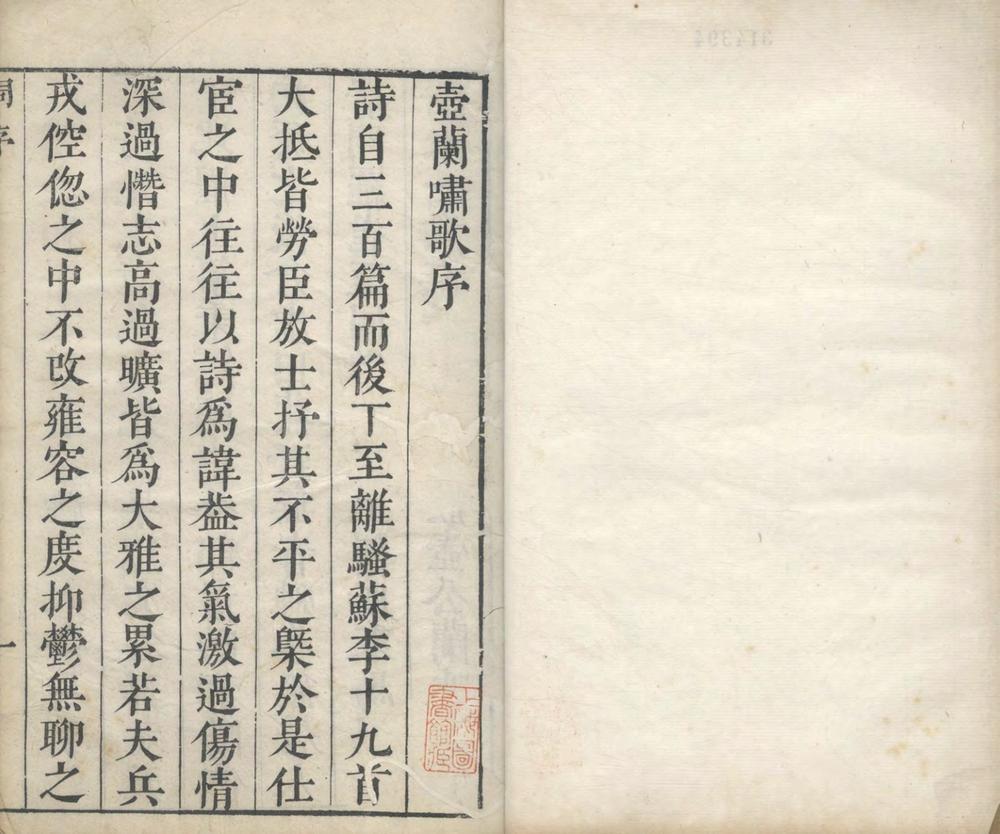 壺蘭嘯歌序
詩自三百篇而後丅至離騷蘇李十九首
大抵皆勞臣放士抒其不平之槩於是仕
宦之中往往以詩爲諱葢其氣激過傷情
深過憯志高過曠皆爲大雅之累若夫兵
戎倥偬之中不改雍容之度抑鬱無聊之
序
一
上海圖
書館藏
314394